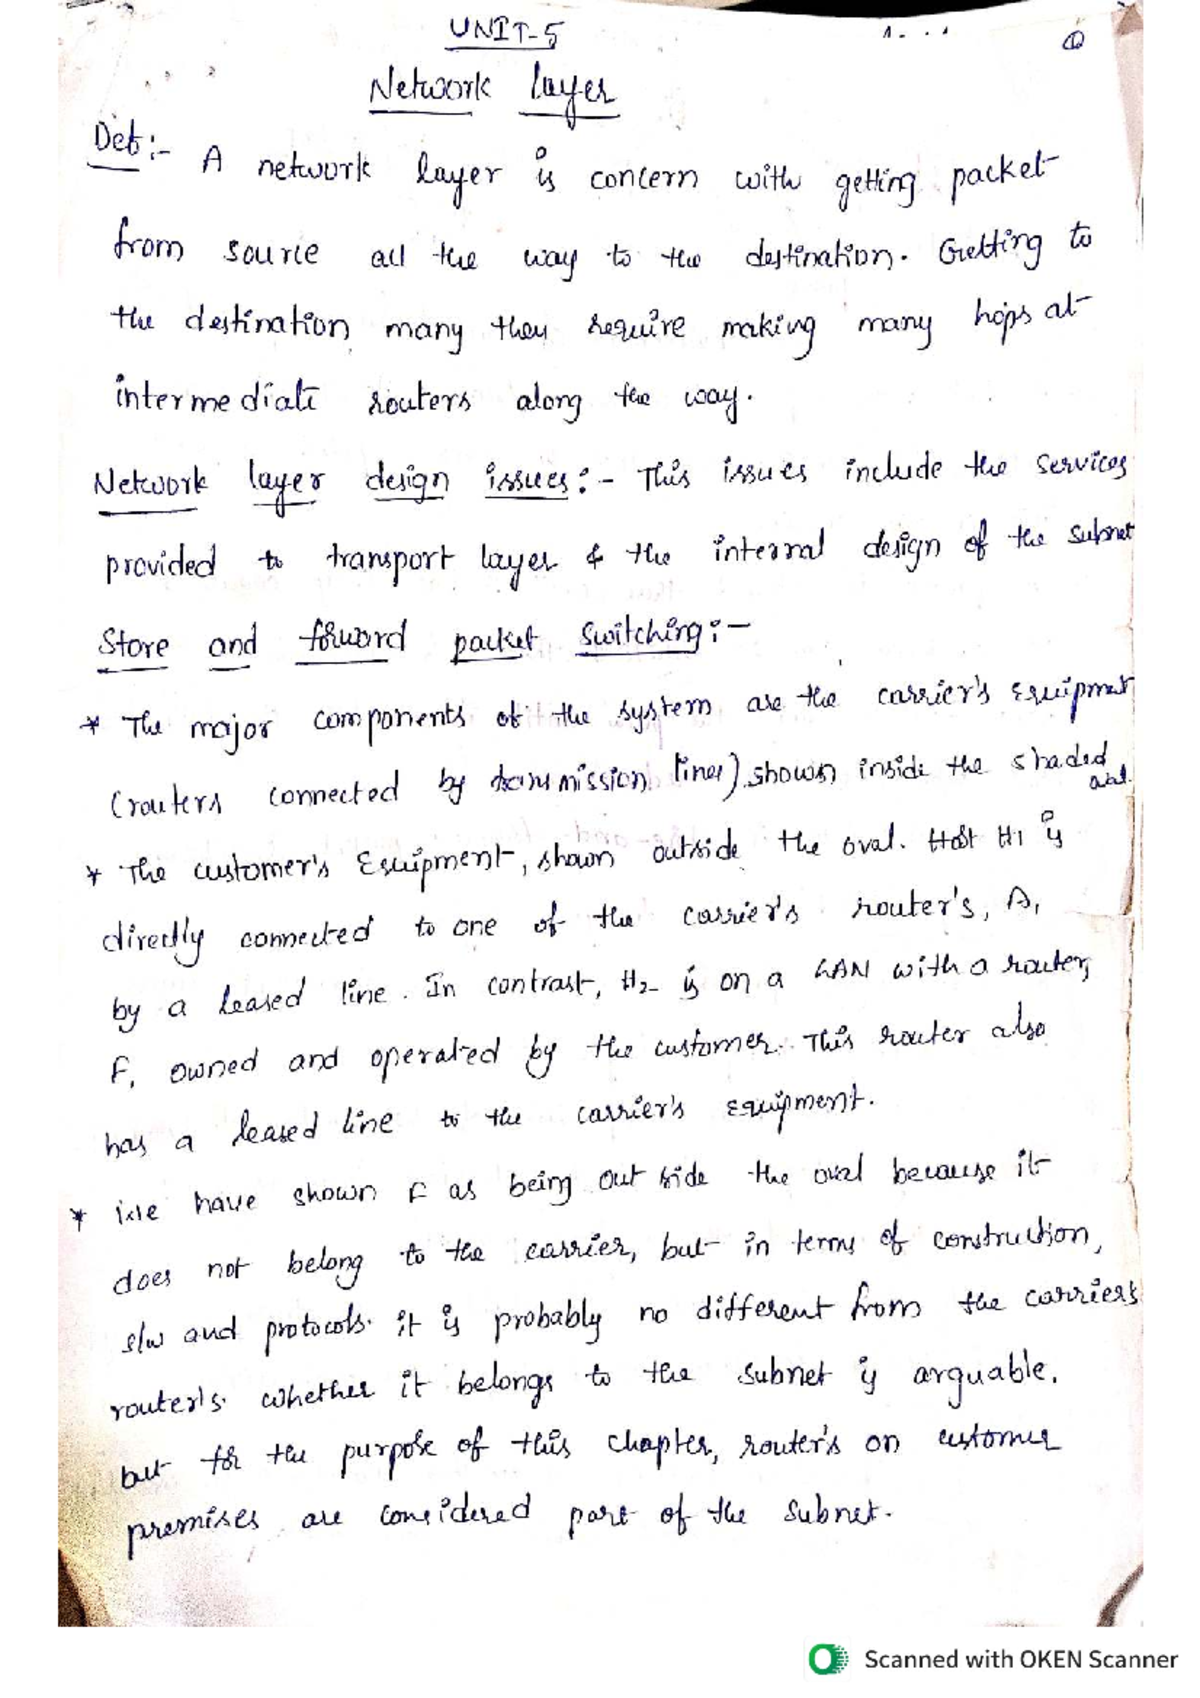 UNIT-5
①
Network layer
Def:- A network layer is concern with getting packet
from source all the way to the destination. Getting to
the destination many they require making many hops at
intermediate routers along the way.
Network layer design issues:- This issues include the services
provided to transport layer & the internal design of the subnet
Store and forward packet switching:-
* The major components of the system are the carrier's Equipment
(routers connected by transmission lines) shown inside the shaded
oval.
* The customer's Equipment, shown outside the oval. Host H1 is
directly connected to one of the carrier's router's, A,
by a leased line. In contrast, H2 is on a LAN with a router,
F, owned and operated by the customer. This router also
has a leased line to the carrier's equipment.
* we have shown F as being out side the oval because it
does not belong to the carrier, but in terms of construction,
s/w and protocols. it is probably no different from the carrier's
router's. whether it belongs to the subnet is arguable.
but for the purpose of this chapter, router's on customer
premises are considered part of the subnet.
Scanned with OKEN Scanner